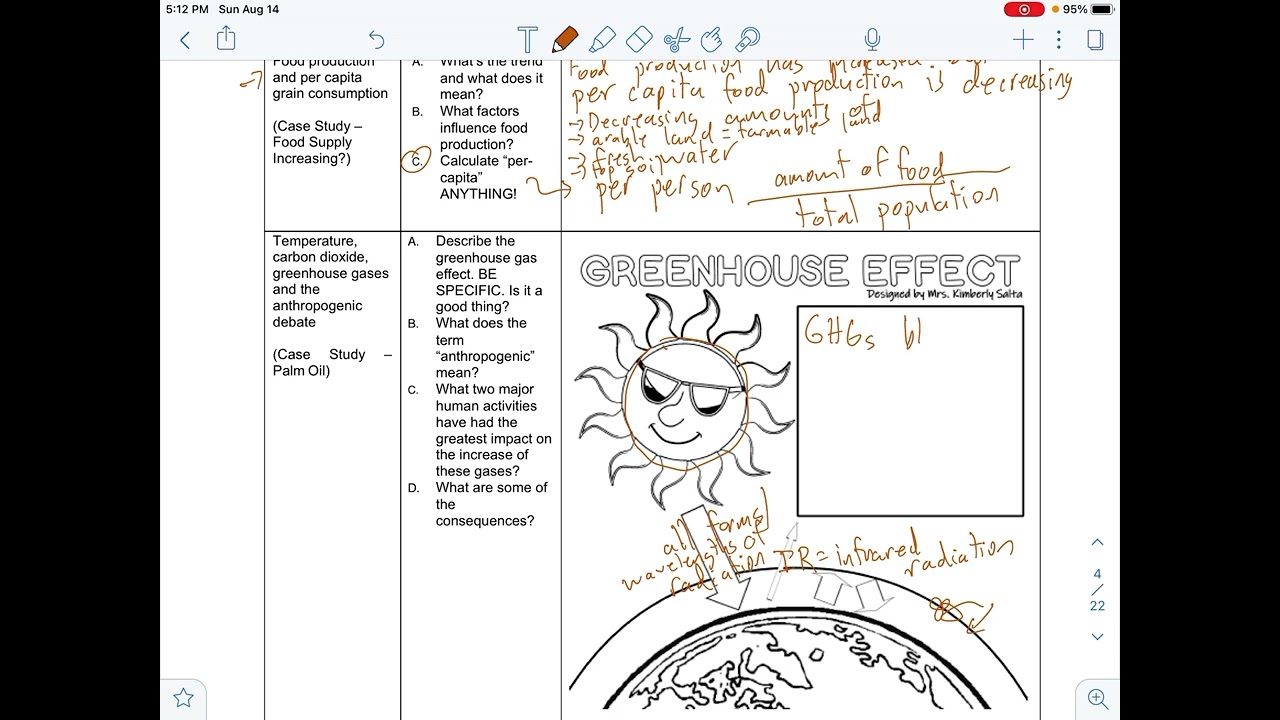 5:12 PM Sun Aug 14
95%
T
Food production
and per capita
grain consumption
(Case Study –
Food Supply
Increasing?)
A. What's the trend
and what does it
mean?
B. What factors
influence food
production?
C. Calculate "per-
capita"
ANYTHING!
Food production has increased.
per capita food production is decreasing
→ Decreasing amounts of
→ arable land = farmable land
→ fresh water
→ top soil
per person
amount of food
total population
Temperature,
carbon dioxide,
greenhouse gases
and the
anthropogenic
debate
(Case Study –
Palm Oil)
A. Describe the
greenhouse gas
effect. BE
SPECIFIC. Is it a
good thing?
B. What does the
term
"anthropogenic"
mean?
C. What two major
human activities
have had the
greatest impact on
the increase of
these gases?
D. What are some of
the
consequences?
GREENHOUSE EFFECT
Designed by Mrs. Kimberly Salta
GHGs bl
all forms/
wavelengths of
radiation
IR = infrared
radiation
4
/
22